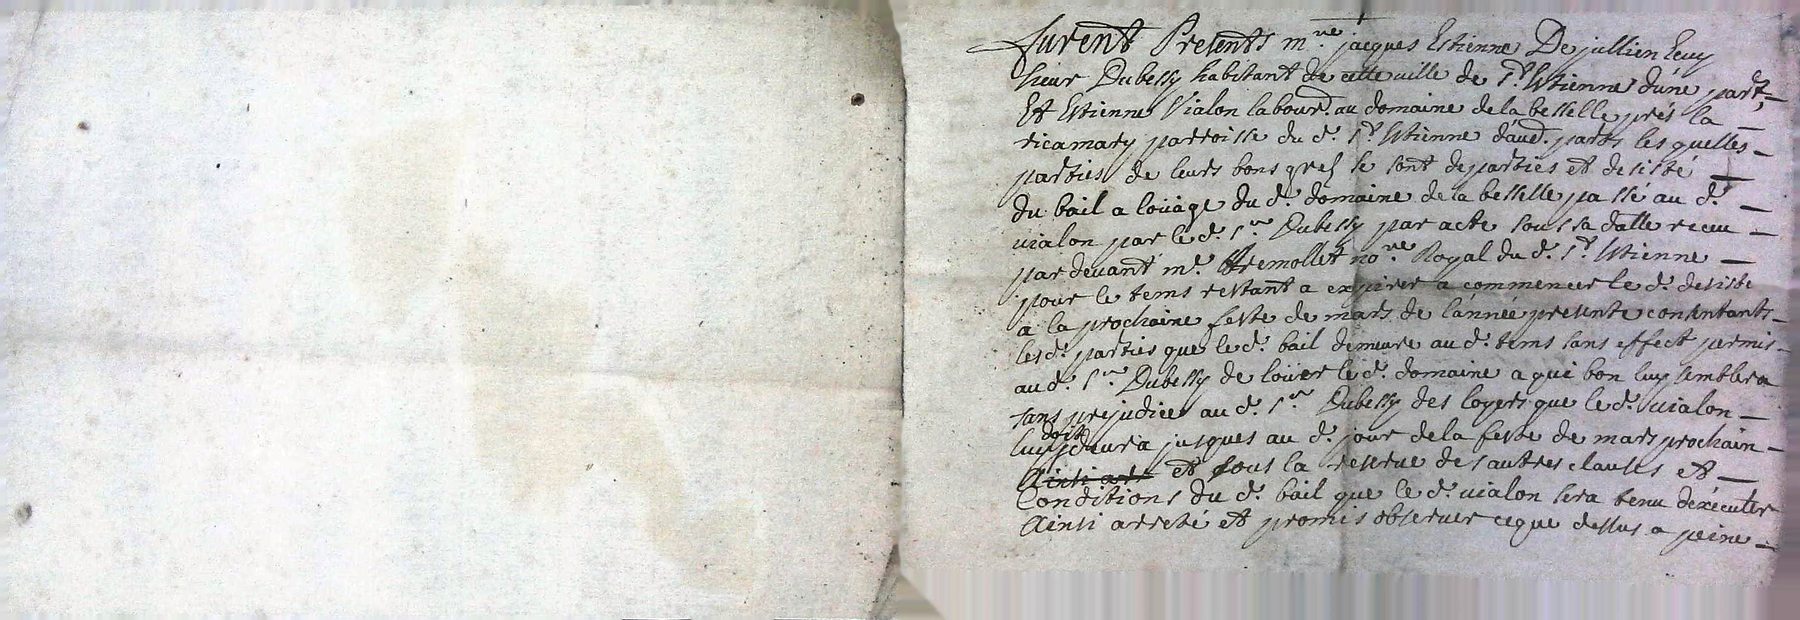 furent Presents m.re jacques Estienne De jullien Ecuy
sieur Dubessy habitant de cette ville de s.t Estienne d'úne part,
Et Estienne Vialon labour.r au domaine de la besselle prés la
ricamary parroisse du d. s.t Estienne d'aud. part les quelles
parties de leurs bons gres se sont departies et desisté
du bail a loüage du d. domaine de la besselle passé au d.
vialon par le d. s.r Dubessy par acte sous sa datte receu
par devant m.e tremollet no.re Royal du d. s.t Estienne
pour le tems restant a expirer a commencer le d. desiste
a la prochaine feste de mars de l'année presente consentants
les d. parties que le d. bail demeure au d. tems sans effect permis
au d. s.r Dubessy de loüer le d. domaine a qui bon luy semblera
sans prejudice au d. s.r Dubessy des loyers que le d. vialon
luy doit devra jusques au d. jour de la feste de mars prochain
et sous la reserve des autres clauses et
Conditions du d. bail que le d. vialon sera tenu dexécuter
Ainsi arreté et promis observer ceque dessus a peine